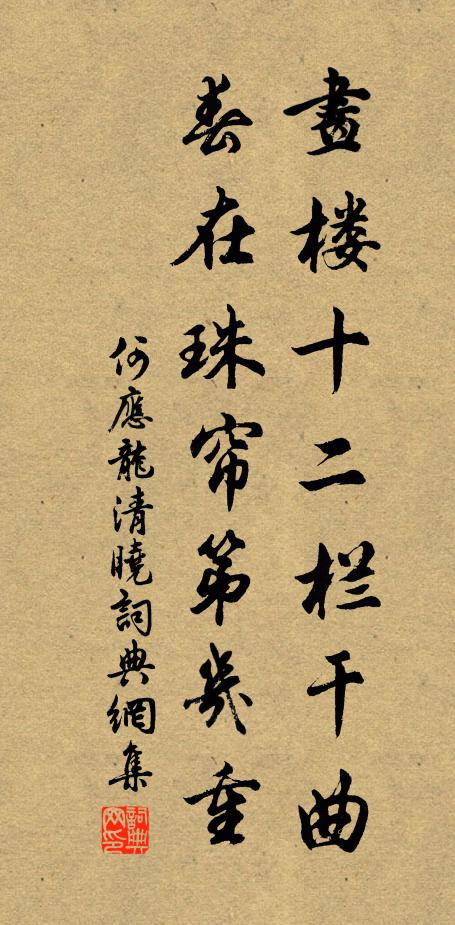 畫楼十二栏干曲
春在珠帘第几重
何應龍清曉詞典網集
詞典网印